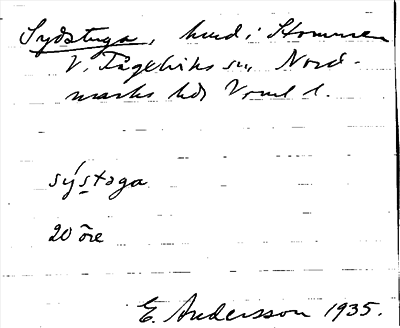 Sydstuga, hmd i Hommen
V. Fågelviks sn, Nord-
marks hd, Vrml l.
sýstəga
20 öre
E. Andersson 1935.